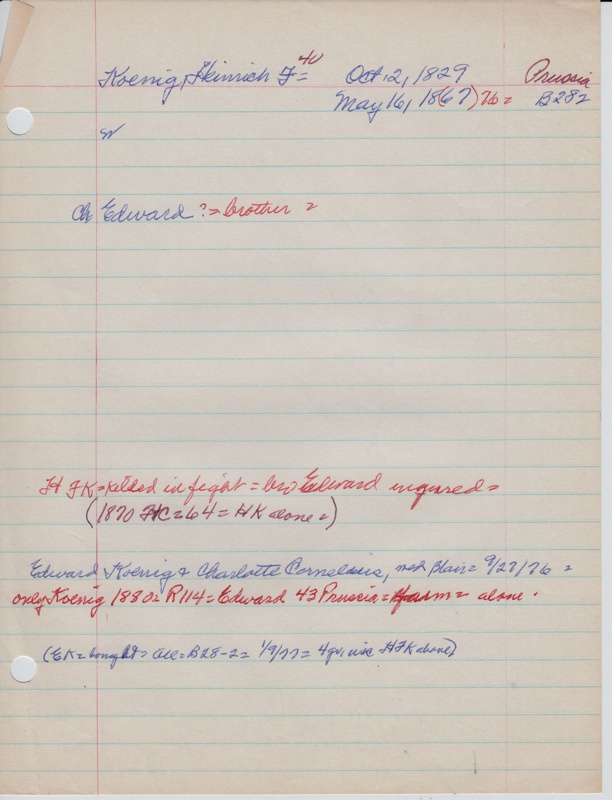 Koenig, Heinrich F = 40 Oct. 2, 1829 Prussia
May 16, 18(67) 76 = B282
w
Ch Edward ? = brother =
H F K = killed in fight = bro Edward injured =
(1870 = 64 = HK alone =)
Edward Koenig & Charlotte Cornelius, med Blair = 9/27/76 =
only Koenig 1880 = R114 = Edward 43 Prussia = Farm = alone .
(EK = bought = = B28-2 = 1/9/77 = 4 gv, HFK above)